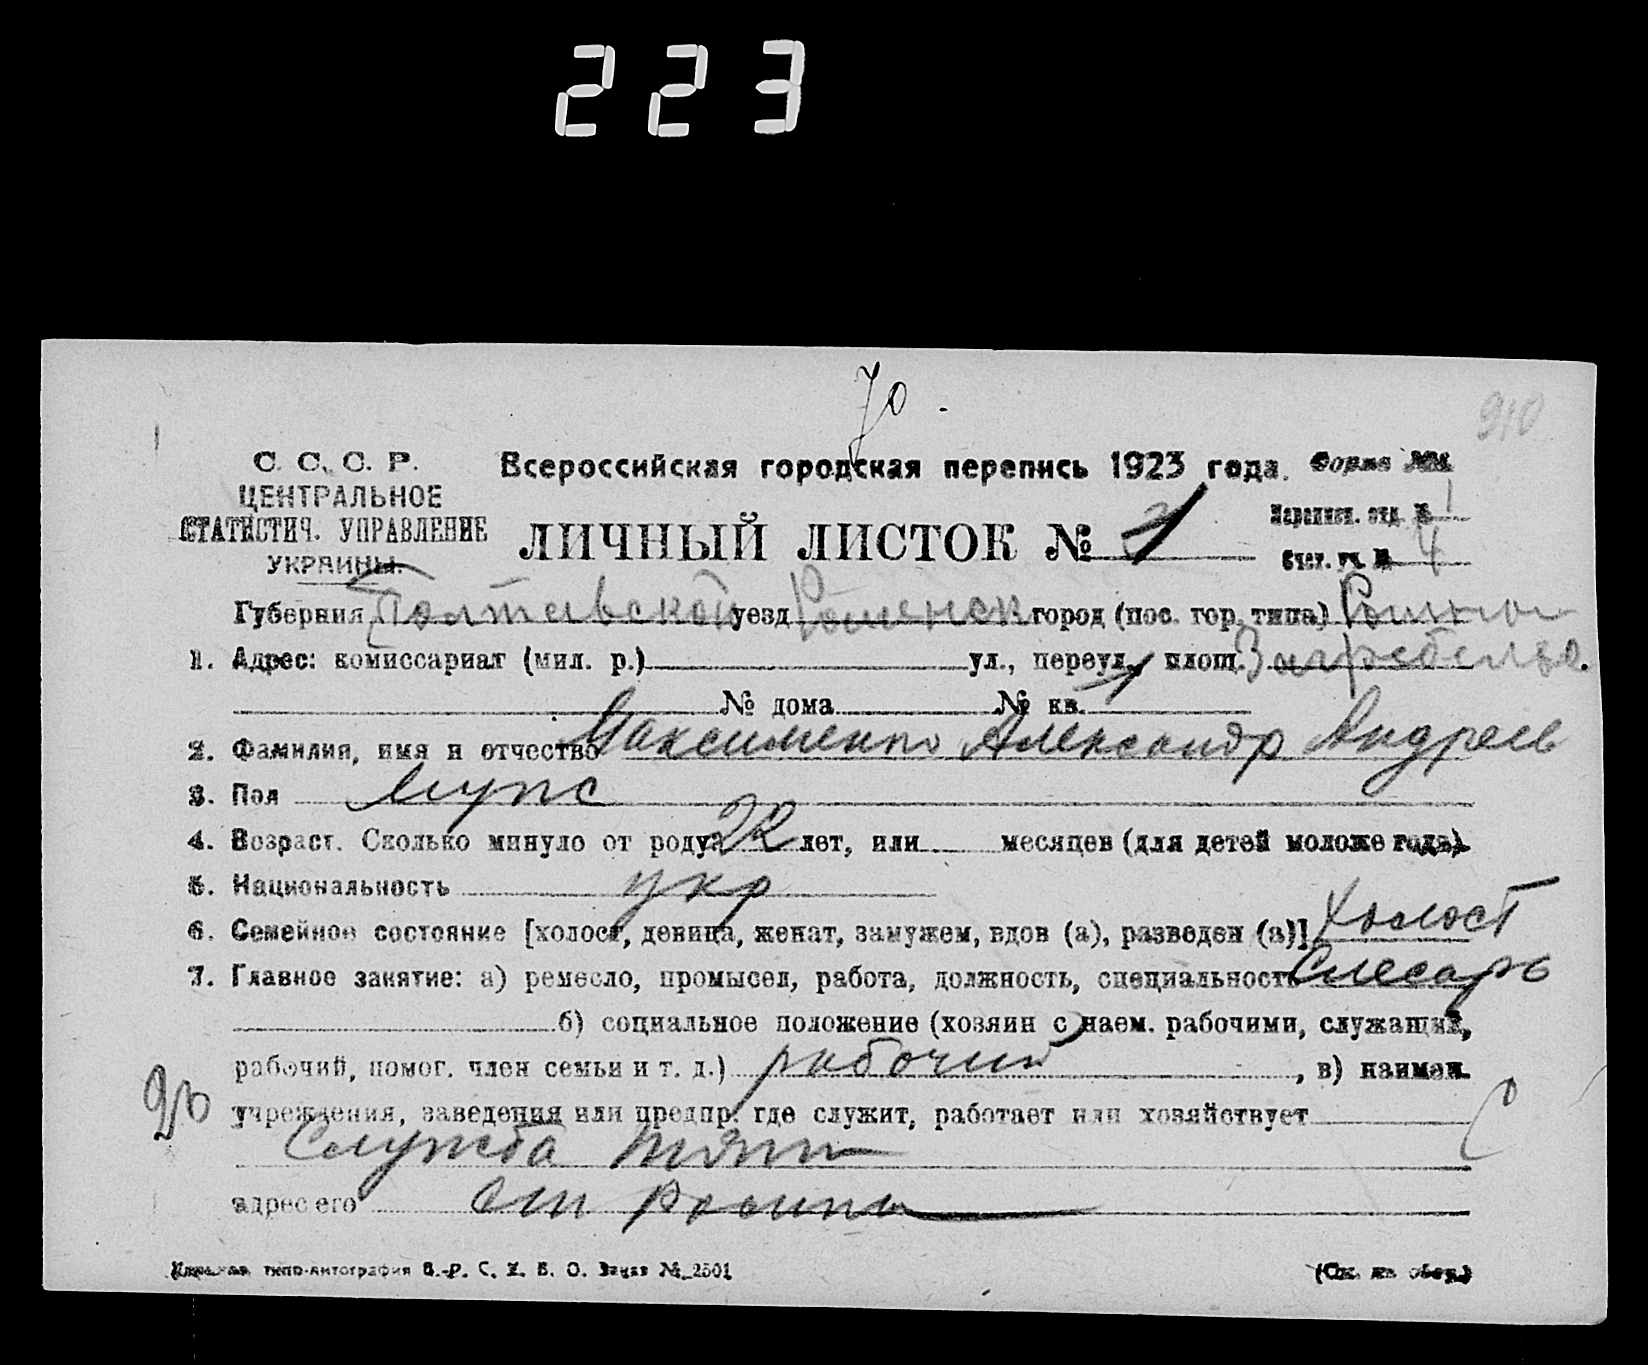 223
70.
910
С. С. С. Р.
ЦЕНТРАЛЬНОЕ
СТАТИСТИЧ. УПРАВЛЕНИЕ
УКРАИНЫ.
Всероссийская городская перепись 1923 года.
Форма №1
ЛИЧНЫЙ ЛИСТОК №
отд. № 1
Счет. уч. № 4
Губерния Полтавской уезд Роменск город (пос. гор. типа) Ромны
1. Адрес: комиссариат (мил. р.) ул., переул., площ. Загребелье.
№ дома № кв. 1
2. Фамилия, имя и отчество Максименко Александр Андреев
3. Пол Мужс
4. Возраст. Сколько минуло от роду? 22 лет, или месяцев (для детей моложе года).
5. Национальность укр
6. Семейное состояние [холост, девица, женат, замужем, вдов (а), разведен (а)] Холост
7. Главное занятие: а) ремесло, промысел, работа, должность, специальность Слесарь
б) социальное положение (хозяин с наем. рабочими, служащий,
рабочий, помог. член семьи и т. д.) рабочий, в) наимен.
учреждения, заведения или предпр. где служит, работает или хозяйствует
Служба тяги
адрес его ст Ромны
типо-литография В.-Р. С. Х. В. О. Заказ № 2501
(См. на обор.)